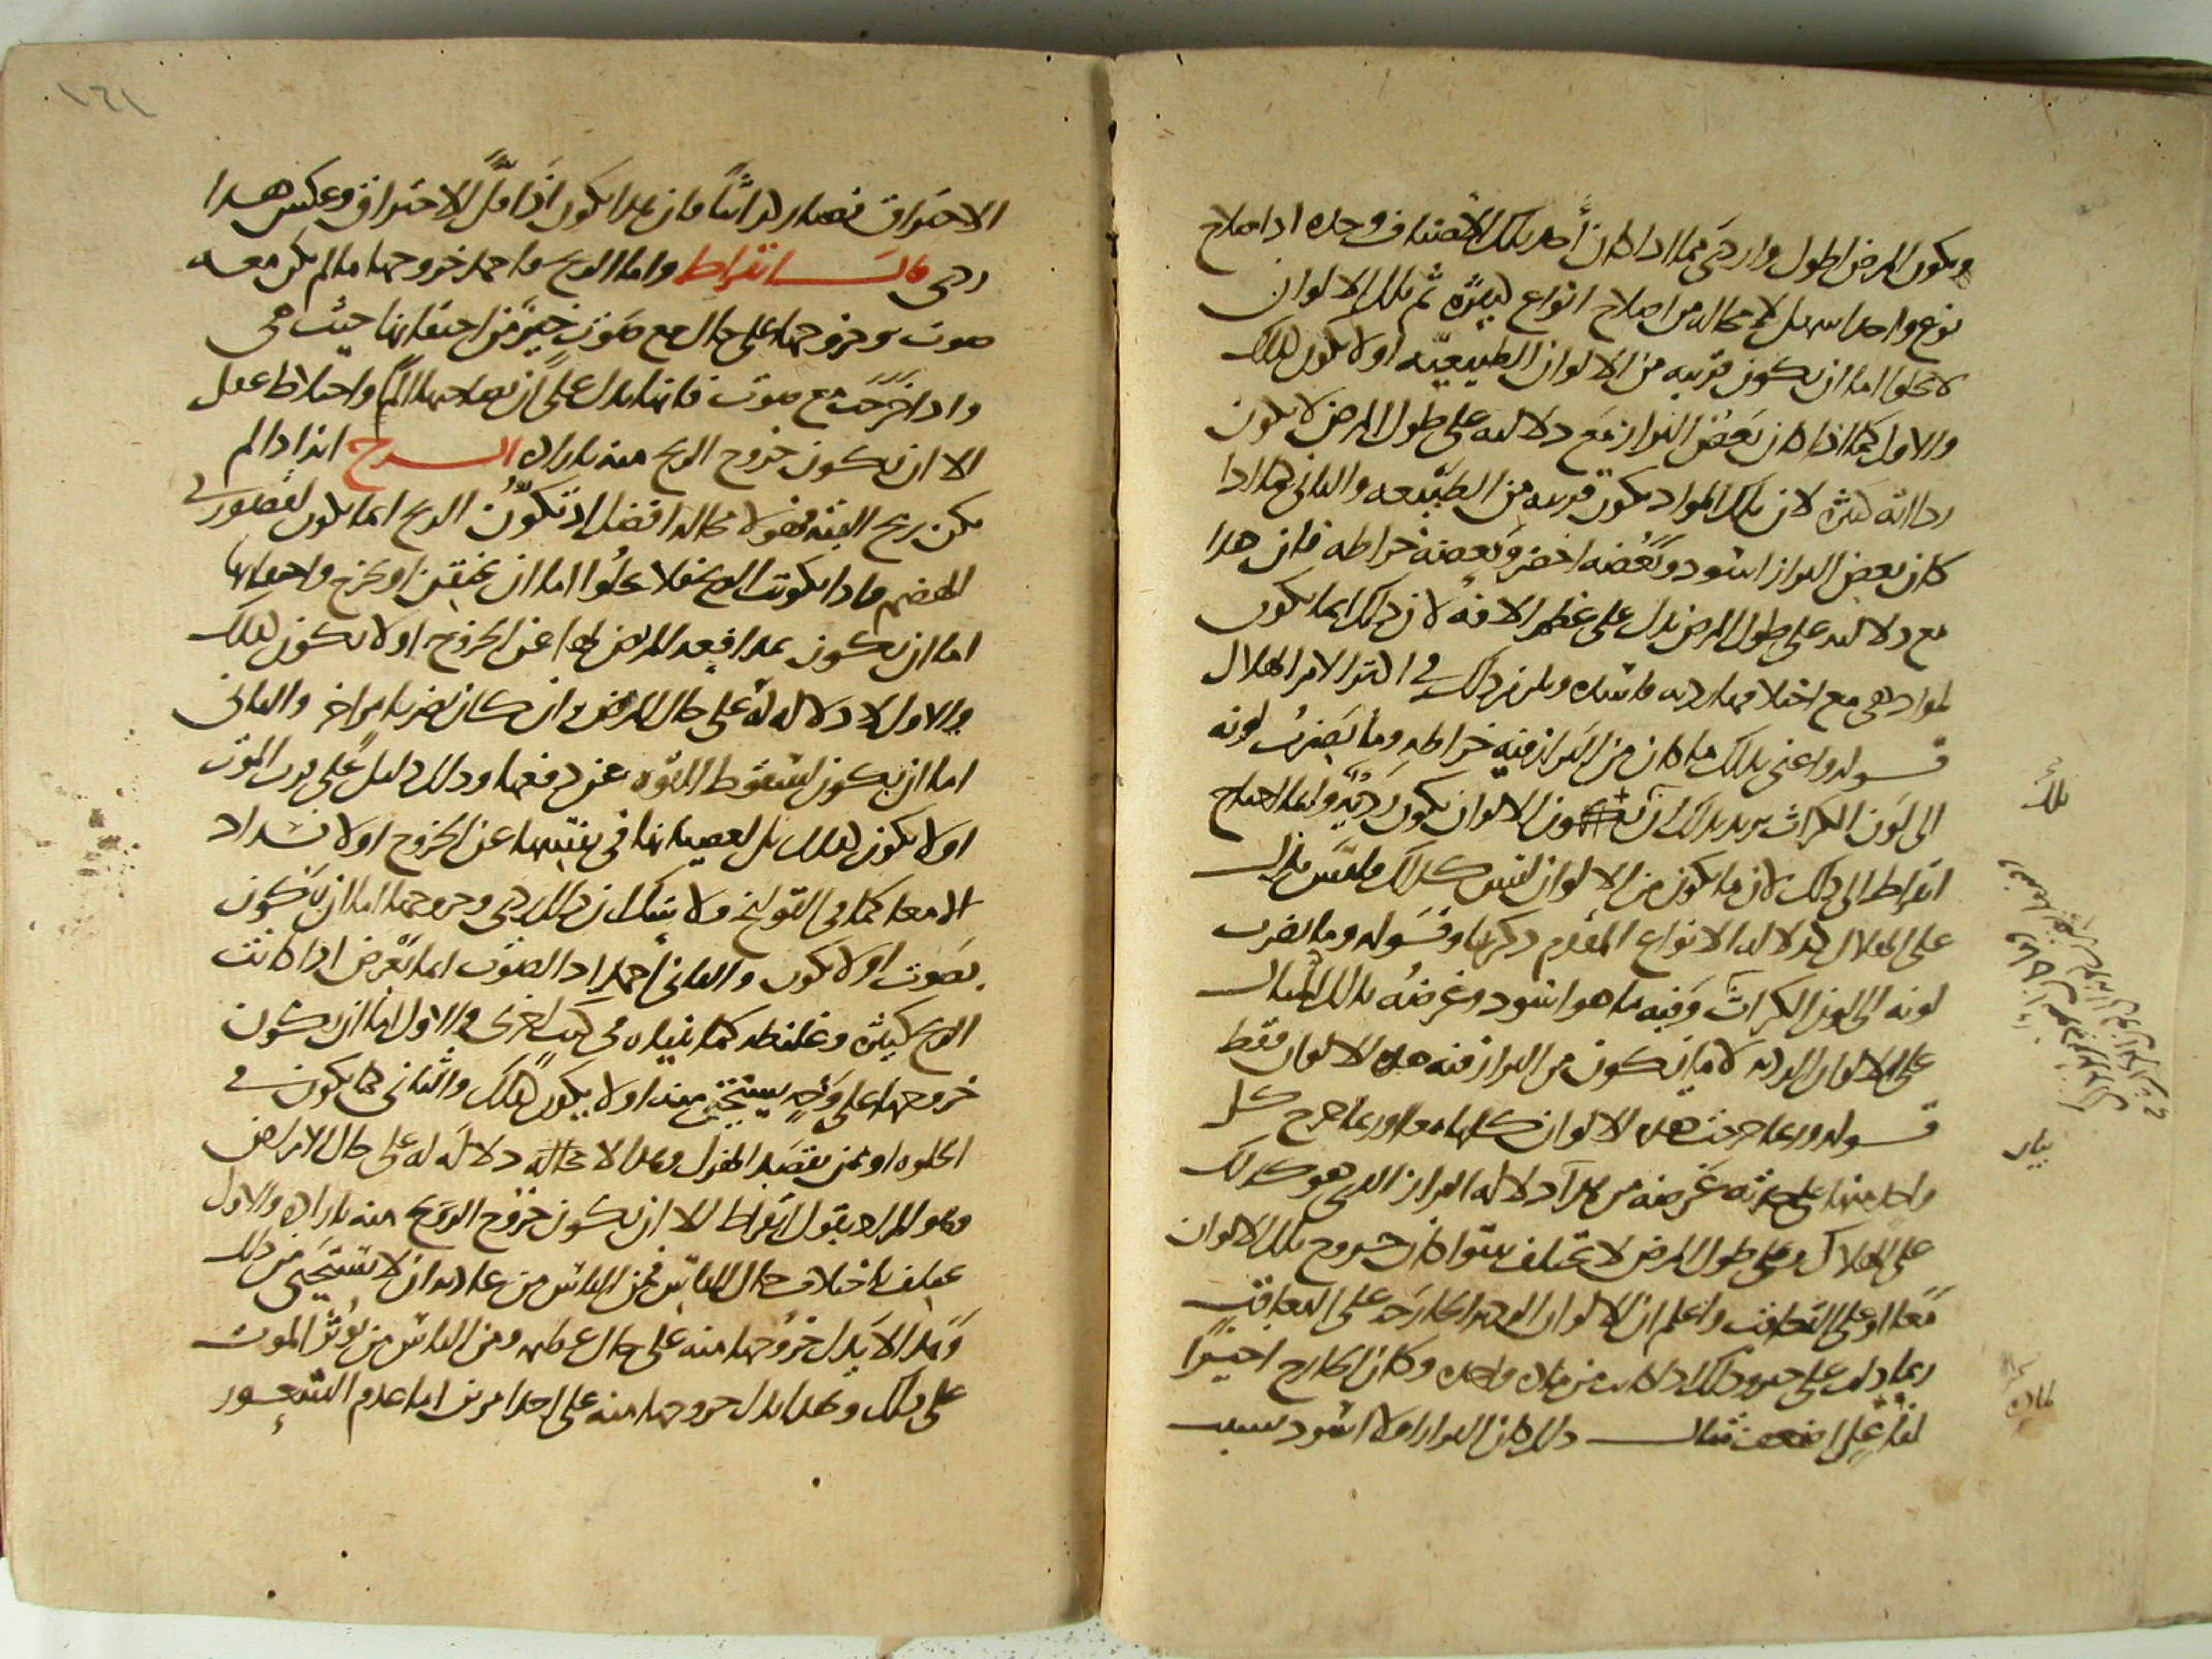 ويكون المرض اطول واردى مما اذا كان احد تلك الاصناف وحده اذ اصلاح
نوع واحد اسهل لا محاله من اصلاح انواع كثيره ثم تلك الالوان
لا تخلوا اما ان تكون قريبه من الالوان الطبيعيه او لا تكون كذلك
والاول كما اذا كان بعض البراز مع دلالته على طول المرض لا يكون
رداءته كثيره لان تلك المواد تكون قريبه من الطبيعه والثانى كما اذا
كان بعض البراز اسود وبعضه اخضر وبعضه خراطه فان هذا
مع دلالته على طول المرض يدل على عظم الافه لان ذلك انما يكون
لمواد هى مع اختلافها رديه فاسده ويلزم ذلك فى اكثر الامر الهلاك
قوله واعنى بذلك ما كان من البراز فيه خراطه وما يضرب لونه
الى لون الكراث يريد بذلك ان الالوان تكون رديه وانما احتاج
ابقراط الى ذلك لان ما يكون من الالوان ليس كذلك فليس يدل
على الهلاك كدلاله الانواع المقدم ذكرها وقوله وما يضرب
لونه الى لون الكراث وفيه ما هو اسود وغرضه بذلك المثال
على الالوان الرديه لا ما يكون من البراز فيه هذه الالوان فقط
قوله وربما خرجت هذه الالوان كلها معا وربما خرج كل
واحد منها على حدته غرضه من هذا دلاله البراز الذى هو كذلك
على الهلاك وعلى طول المرض لا تختلف سوا كان خروج تلك الالوان
معا او على التعاقب واعلم ان الالوان الرديه الخارجه على التعاقب
ربما دلت على خير وذلك اذا كانت من ماده واحده وكان الخارج اخيرا
لذلك
بيان
ماده
١٦١
الاحتراق فصار كراثيا فان هذا يكون اذا قل الاحتراق وعكس هذا
ردى قال ابقراط واما الريح فاحمد خروجها ما لم يكن معه
صوت وخروجها على حال مع صوت خير من احتقانها حيث هى
واذا خرجت مع صوت فانها تدل على ان بصاحبها الما واختلاط عقل
الا ان يكون خروج الريح منه باراده الشرح اذا لم
يكن ريح البته فهو لا محاله افضل اذ تكون الريح انما يكون لقصور فى
الهضم فاذا تكونت الريح فلا تخلوا اما ان تحتقن او تخرج واحتقانها
اما ان يكون عمدا فيعد المريض لها عن الخروج او لا يكون كذلك
والاول لا دلاله له على حال المرض وان كان يضر بامر اخر والثانى
اما ان يكون لسقوط القوه عن دفعها وذلك دليل على قرب الموت
او لا يكون كذلك بل لعصيانها فى نفسها عن الخروج او لانسداد
الامعا كما فى القولنج ولا شك ان ذلك ردى وخروجها اما ان يكون
بصوت او لا يكون والثانى احمد اذ الصوت انما يعرض اذا كانت
الريح كثيره وغليظه كما بيناه فى كتب اخرى والاول اما ان يكون
خروجها على وجه يستحى منه او لا يكون كذلك والثانى كما يكون فى
الخلوه او عمن يقصد الهزل وهذا لا محاله دلاله له على حال الامراض
وهو المراد بقول ابقراط الا ان يكون خروج الريح منه باراده والاول
يختلف باختلاف حال الناس فمن الناس من عادته ان لا يستحيى من ذلك
وهذا لا يدل خروجها منه على حال عقله ومن الناس من يوثر الموت
على ذلك وهذا يدل خروجها منه على احد امرين اما عدم الشعور